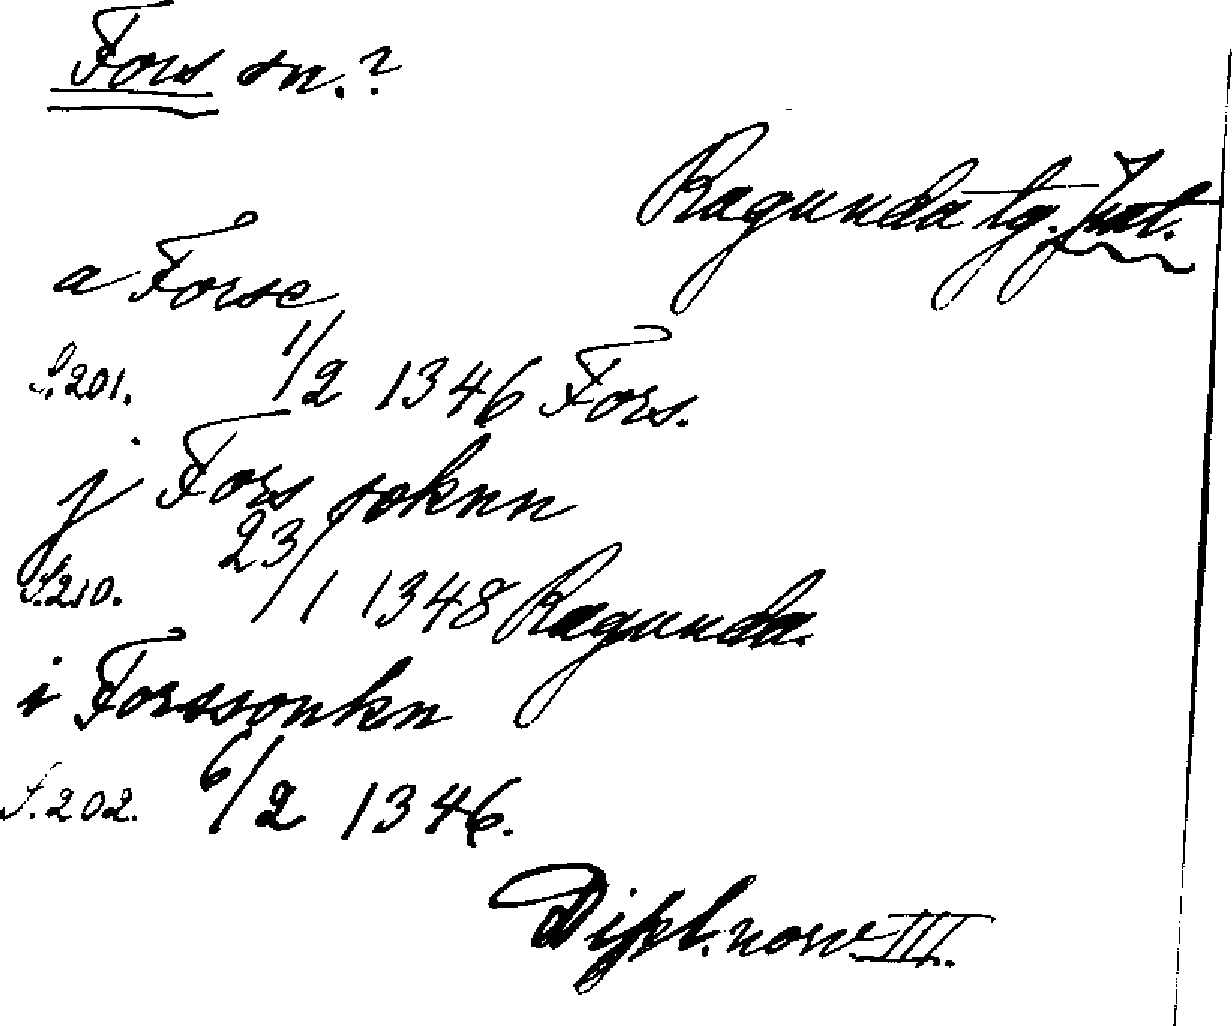 Fors sn.?
Ragunda tg. Jmt.
a Forse
S. 201. 1/2 1346 Fors.
j Fors soknn
S. 210. 23/1 1348 Ragunda.
i Forssonkn
S. 202. 6/2 1346.
Dipl. norv. III.